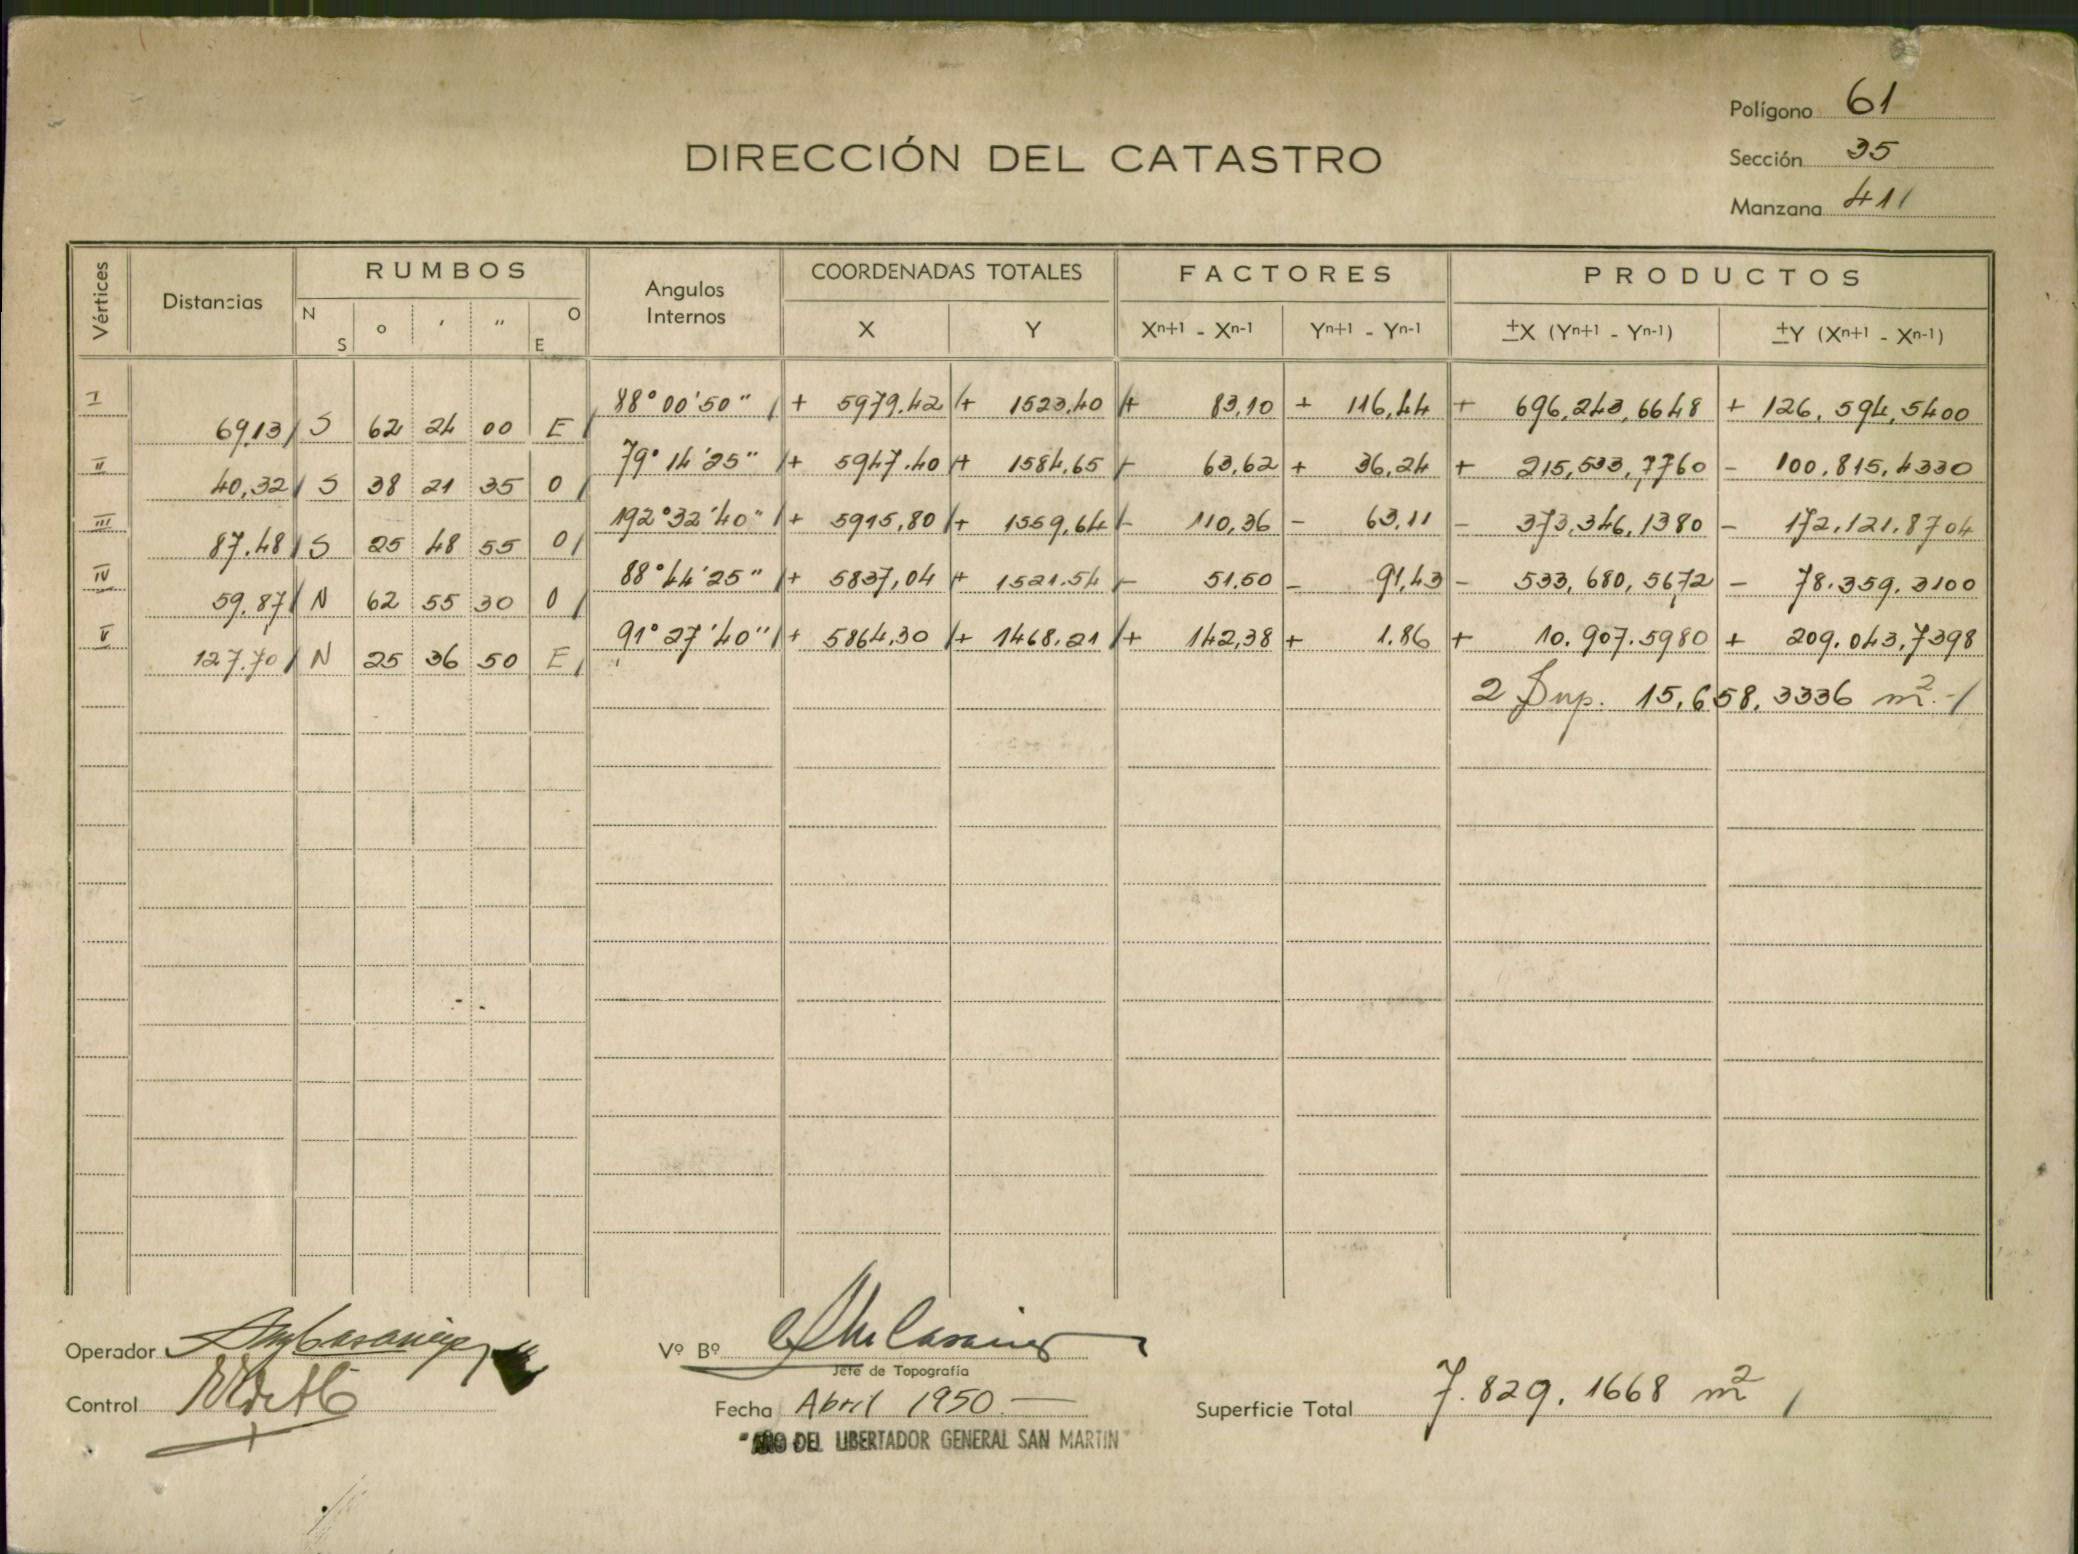 Polígono 61
DIRECCIÓN DEL CATASTRO
Sección 35
Manzana 411
Vértices Distancias RUMBOS Angulos Internos COORDENADAS TOTALES FACTORES PRODUCTOS
N S o ' " O E X Y Xn+1 - Xn-1 Yn+1 - Yn-1 ±X (Yn+1 - Yn-1) ±Y (Xn+1 - Xn-1)
I 88° 00' 50" + 5979.42 + 1523.40 + 83,10 + 116,44 + 696,243,6648 + 126.594,5400
69,13 S 62 24 00 E
II 79° 14' 25" + 5947.40 + 1584.65 - 63,62 + 36,24 + 215,533,7760 - 100.815.4330
40,32 S 38 21 35 O
III 192° 32' 40" + 5915,80 + 1559,64 - 110,36 - 63,11 - 373,346,1380 - 172.121.8704
87.48 S 25 48 55 O
IV 88° 44' 25" + 5837,04 + 1521.54 - 51,50 - 91,43 - 533,680,5672 - 78.359.3100
59.87 N 62 55 30 O
V 91° 27' 40" + 5864,30 + 1468.21 + 142,38 + 1.86 + 10.907.5980 + 209.043,7398
127.70 N 25 36 50 E
2 Sup. 15,658,3336 m2.-/
Operador
Vº Bº
Jefe de Topografía
Control
Fecha Abril 1950.—
Superficie Total 7.829.1668 m2 /
"AÑO DEL LIBERTADOR GENERAL SAN MARTIN"